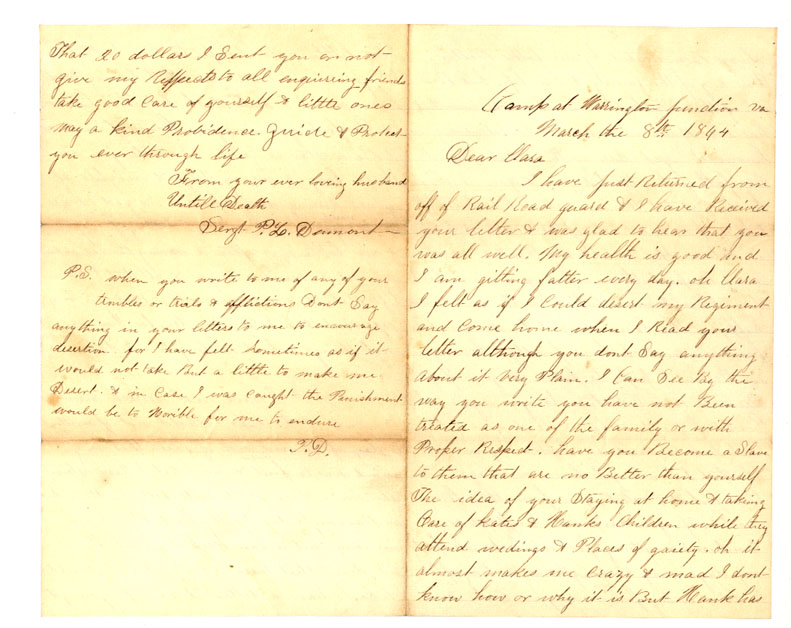 Camp at Warrington junction va
March the 8th 1864
Dear Clara
I have just Returned from
off of Rail Road guard & I have Recived
your letter & was glad to hear that you
was all well. My health is good and
I am gitting fatter every day. oh Clara
I felt as if I Could desert my Regiment
and Come home when I Read your
letter although you dont Say anything
about it very Plain. I Can See By the
way you write you have not Been
treated as one of the family or with
Proper Respect. have you Become a Slave
to them that are no Better than yourself
The idea of your Staying at home & taking
Care of Kates & Hanks Children while they
attend wedings & Places of gaiety. oh it
almost makes me Crazy & mad I dont
know how or why it is But Hank has
That 20 dollars I Sent you or not
give my Respects to all enquireing friends
take good Care of yourself & little ones
May a kind Providence Guide & Protect
you ever through life
From your ever loveing husband
Untill Death
Sergt P.L. Dumont
P.S. when you write to me of any of your
troubles or trials & afflictions Dont Say
anything in your letters to me to encourage
desertion. for I have felt Sometimes as if it
would not take But a little to make me
Desert. & in Case I was Caught the Punishment
would be to Horible for me to endure
P.D.